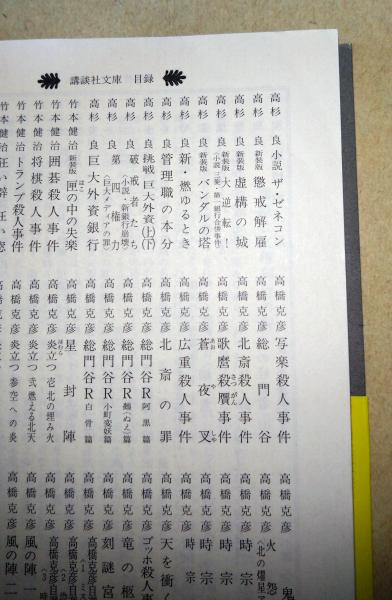 講談社文庫 目録
高杉 良 小説 ザ・ゼネコン
高杉 良 新装版 懲戒解雇
高杉 良 新装版 虚構の城
高杉 良 新装版 大逆転!
〈小説 三菱・第一銀行合併事件〉
高杉 良 新装版 バンダルの塔
高杉 良 新・燃ゆるとき
高杉 良 管理職の本分
高杉 良 挑戦 巨大外資(上)(下)
高杉 良 破戒者たち
〈小説・新銀行崩壊〉
高杉 良 第四権力
〈巨大メディアの罪〉
高杉 良 巨大外資銀行
竹本健治 新装版 匣の中の失楽
竹本健治 囲碁殺人事件
竹本健治 将棋殺人事件
竹本健治 トランプ殺人事件
高橋克彦 写楽殺人事件
高橋克彦 総門谷
高橋克彦 北斎殺人事件
高橋克彦 歌麿殺贋事件
高橋克彦 蒼夜叉
高橋克彦 広重殺人事件
高橋克彦 北斎の罪
高橋克彦 総門谷R 阿黒篇
高橋克彦 総門谷R 鵺(ぬえ)篇
高橋克彦 総門谷R 小町変妖篇
高橋克彦 総門谷R 白骨篇
高橋克彦 星封陣
高橋克彦 炎立つ 壱 北の埋み火
高橋克彦 炎立つ 弐 燃える北天
高橋克彦 炎立つ 参 空への炎
高橋克彦 鬼
高橋克彦 火怨
〈北の燿星
高橋克彦 時宗
高橋克彦 時宗
高橋克彦 時宗
高橋克彦 時宗
高橋克彦 天を衝く
高橋克彦 ゴッホ殺人事
高橋克彦 竜の柩
高橋克彦 刻謎宮
高橋克彦 高橋克彦自
高橋克彦 高橋克彦自
高橋克彦 高橋克彦自
高橋克彦 風の陣 一
高橋克彦 風の陣 二